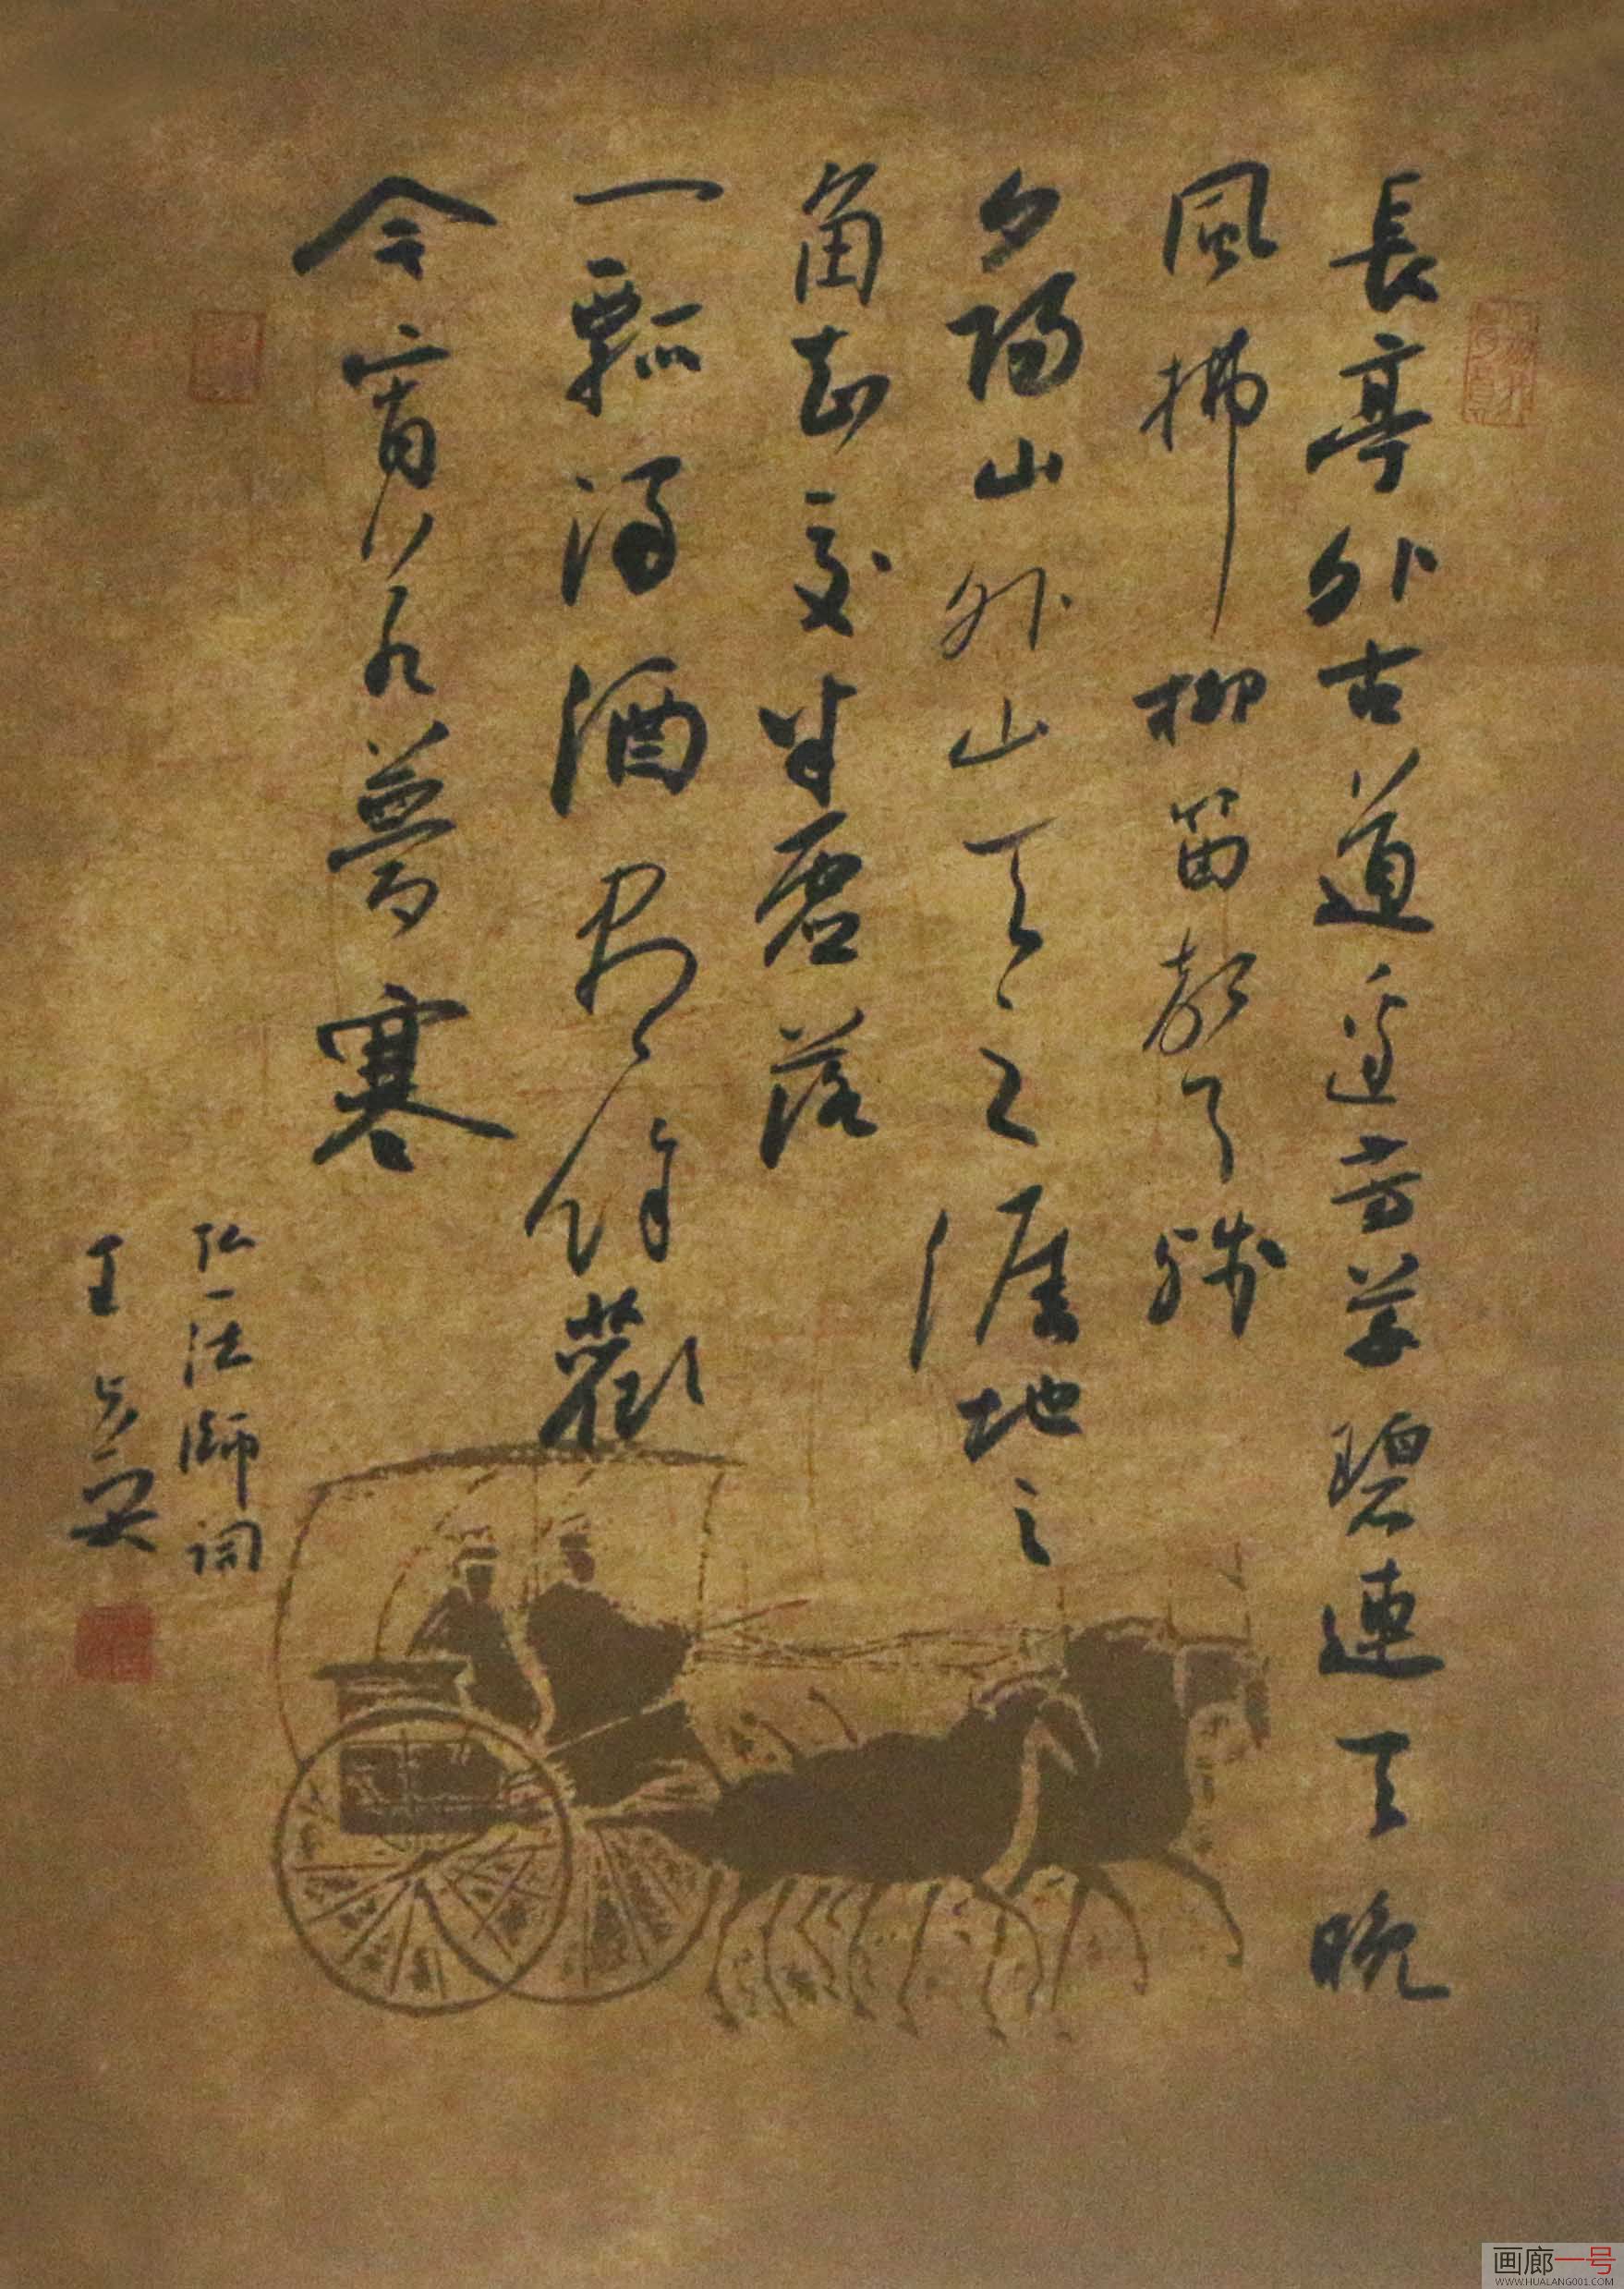 長亭外古道邊芳草碧連天晚
風拂柳笛聲殘
夕陽山外山天之涯地之
角知交半零落
一瓢濁酒盡餘歡
今宵別夢寒
弘一法師詞
王
画廊一号
WWW.HUALANG001.COM